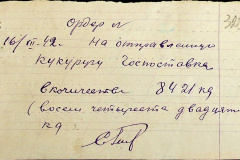 Ордер №
16/VII-42. На отправленную
кукурузу Госпоставка
в количестве 8421 кг
(восем четыреста двадцать
кг